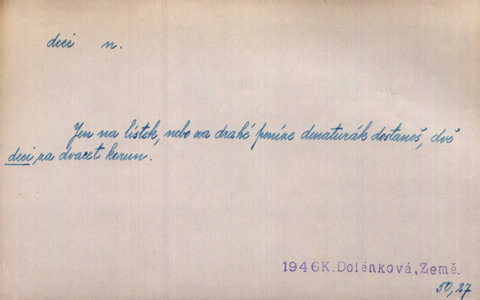 deci n.
Jen na lístek, nebo za drahé peníze denaturák dostaneš, dvě
deci za dvacet korun.
1946K.Dolénková,Země.
50,27